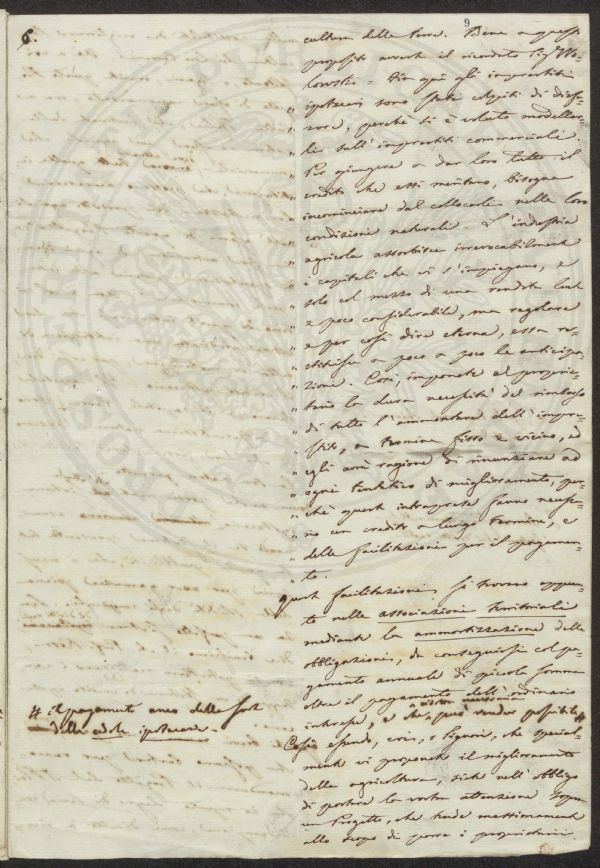 6.
9
coltura delle terre. Bene a questo
proposito avverte il ricordato Sig.r Wo-
lowski = Fin quì gli imprestiti
" ipotecarj sono stati colpiti di disfa-
" vore, perchè si è voluto modellar-
" li sull'imprestiti commerciali.
" Per giungere a dar loro tutto il
" credito che essi meritano, bisogna
" incominciare dal collocarli nelle loro
" condizioni naturali. L'industria
" agricola assorbisce irrevocabilmente
" i capitali che vi s'impiegano, e
" solo col mezzo di una rendita lenta
" e poco considerabile, ma regolare
" e per così dire eterna, essa re-
" stituisce a poco a poco le anticipa-
" zione. Così, imponete al proprie-
" tario la dura necessità del rimborso
" di tutto l'ammontare dell'impre-
" stito, a termine fisso e vicino, ed
" egli avrà ragione di rinunziare ad
" ogni tentativo di miglioramento, per-
" chè queste intraprese fanno
" un credito a lungo termine, e
" delle facilitazioni per il pagamen-
" to.
Queste facilitazioni si trovano appun-
to nelle associazioni territoriali
mediante la ammortizzazione delle
obbligazioni, da conseguirsi col pa-
gamento annuale di piccole somme
oltre il pagamento dell'ordinario
interesse, e che può render possibile #
# il pagamento anco delle
delle cedole ipotecarie.
Così essendo, o Signori, che special-
mente vi proponete il miglioramento
della agricoltura, siete nell'obbligo
di portare la vostra attenzione sopra
un Progetto, che tende massimamente
allo scopo di porre i proprietarii